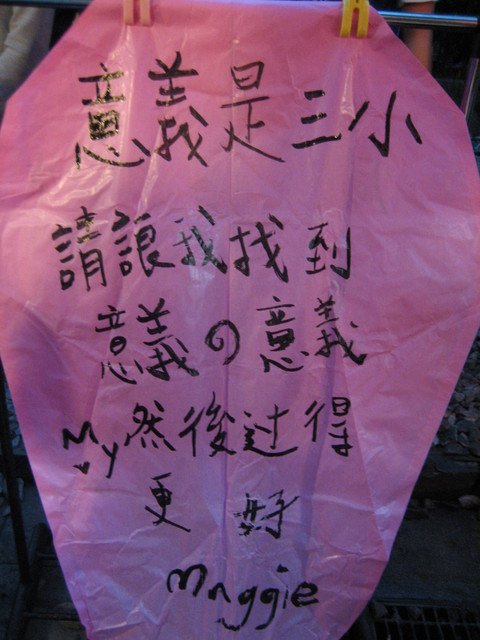 意義是三小
請讓我找到
意義の意義
My然後过得
更好
Maggie